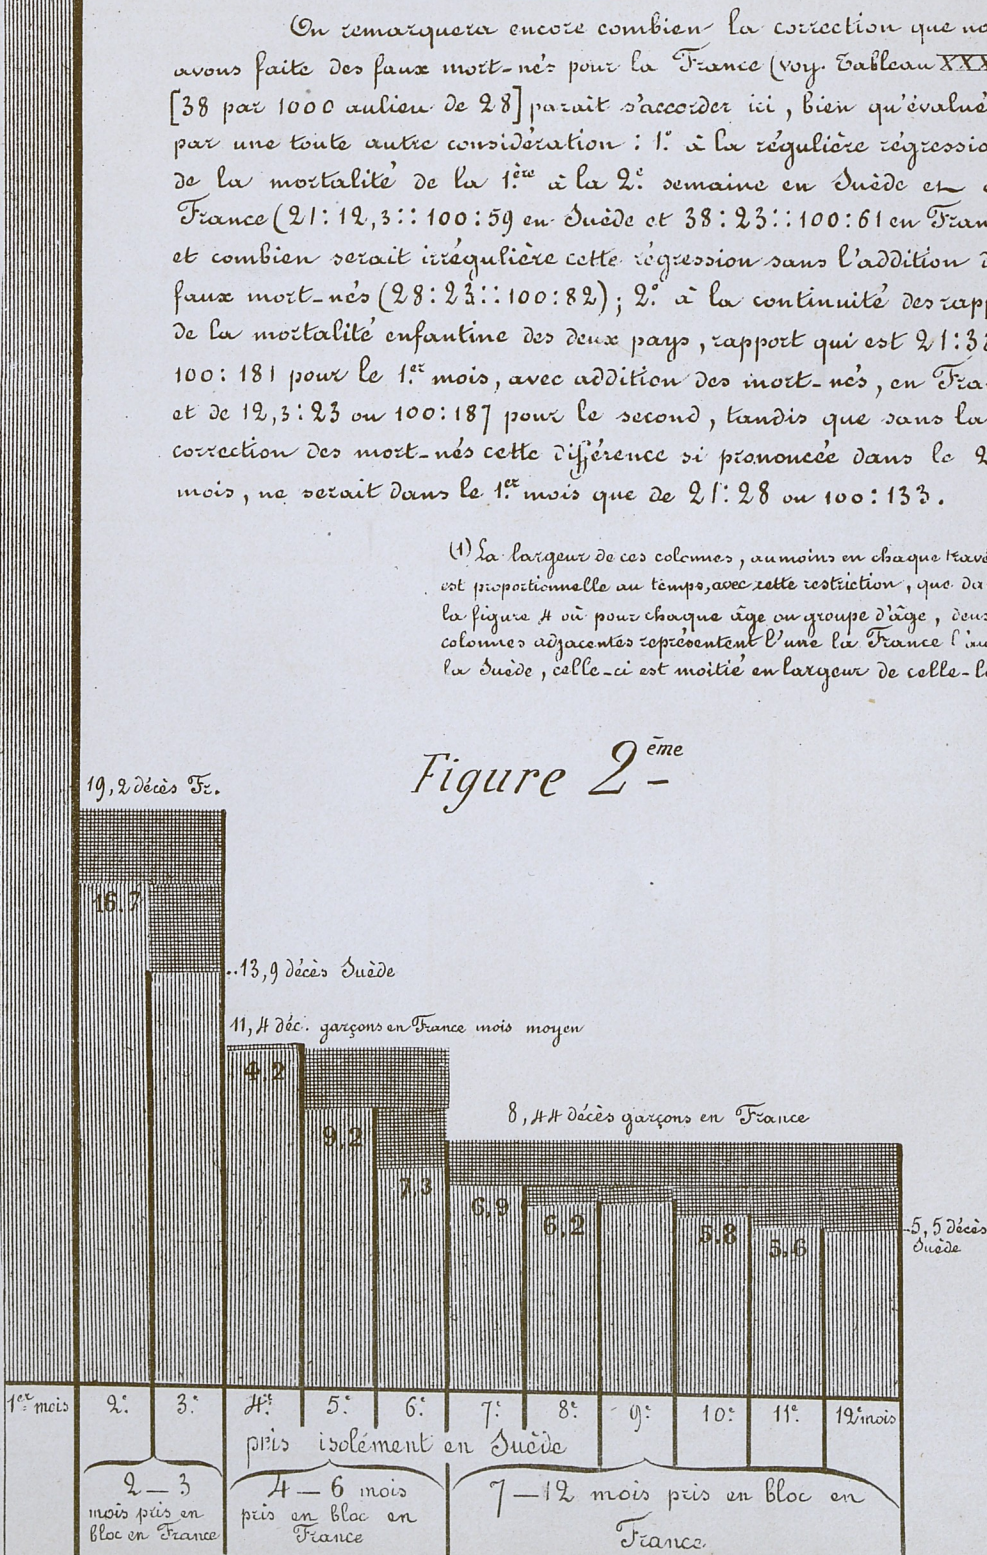 On remarquera encore combien la correction que no
avons faite des faux mort-nés pour la France (voy. Tableau XXX
[38 par 1000 aulieu de 28] parait s'accorder ici, bien qu'évalué
par une toute autre considération : 1.° à la régulière régressio
de la mortalité de la 1.ère à la 2.e semaine en Suède et
France (21 : 12,3 :: 100 : 59 en Suède et 38 : 23 :: 100 : 61 en Fran
et combien serait irrégulière cette régression sans l'addition d
faux mort-nés (28 : 23 :: 100 : 82) ; 2.° à la continuité des rapp
de la mortalité enfantine des deux pays, rapport qui est 21 : 38
100 : 181 pour le 1.er mois, avec addition des mort-nés, en Fra
et de 12,3 : 23 ou 100 : 187 pour le second, tandis que sans la
correction des mort-nés cette différence si prononcée dans le 2
mois, ne serait dans le 1.er mois que de 21 : 28 ou 100 : 133.
(1) La largeur de ces colonnes, aumoins en chaque trav
est proportionnelle au temps, avec cette restriction, que da
la figure 4 où pour chaque âge ou groupe d'âge, deux
colonnes adjacentes représentent l'une la France l'au
la Suède, celle-ci est moitié en largeur de celle-l
Figure 2ème
19,2 décès Fr.
16.7
..13,9 décès Suède
11,4 déc. garçons en France mois moyen
4,2
9,2
7,3
8,44 décès garçons en France
6,9
6,2
5.8
5,6
5,5 décès
Suède
1er mois 2.e 3.e 4.e 5.e 6.e 7.e 8.e 9.e 10.e 11.e 12e mois
pris isolément en Suède
2 — 3
mois pris en
bloc en France
4 — 6 mois
pris en bloc en
France
7 — 12 mois pris en bloc en
France